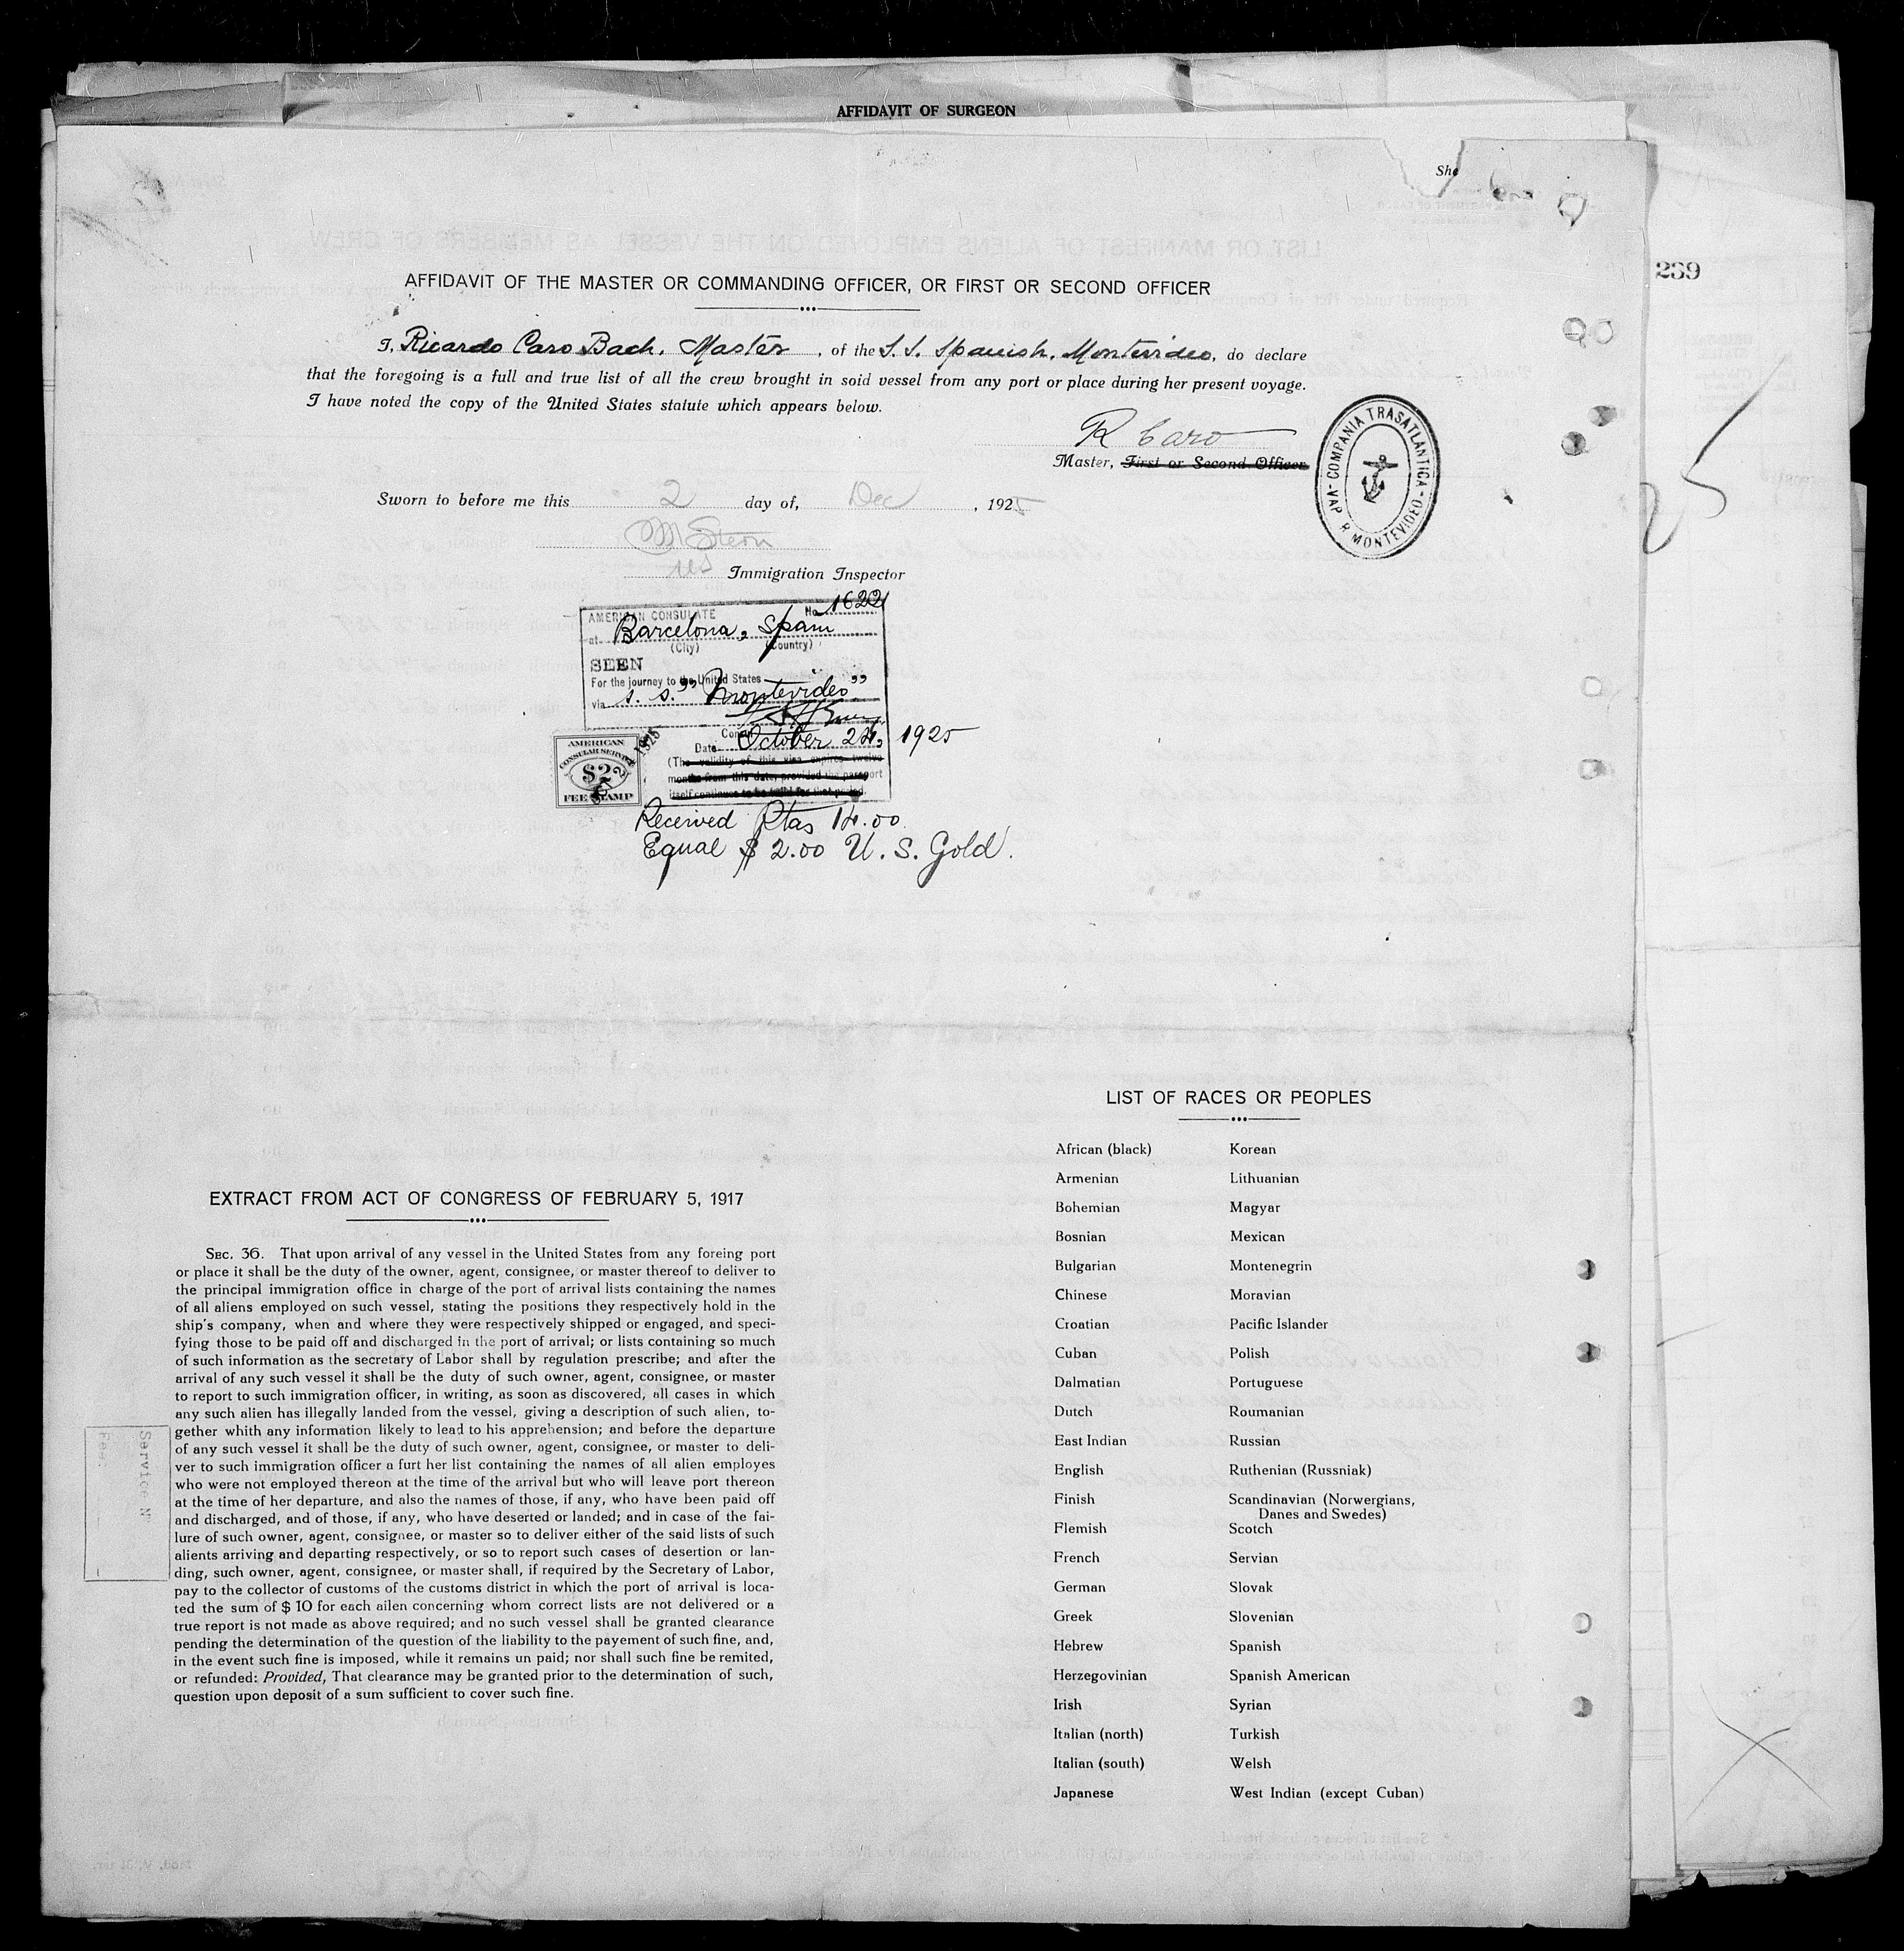 AFFIDAVIT OF SURGEON
She
239
AFFIDAVIT OF THE MASTER OR COMMANDING OFFICER, OR FIRST OR SECOND OFFICER
I, Ricardo Caro Bach. Master, of the S. S. Spanish. Montevideo, do declare
that the foregoing is a full and true list of all the crew brought in soid vessel from any port or place during her present voyage.
I have noted the copy of the United States statute which appears below.
R Caro
Master, First or Second Officer
COMPAÑIA TRASATLANTICA
VAPOR MONTEVIDEO
25
Sworn to before me this 2 day of, Dec, 1925
M Stern
US Immigration Inspector
AMERICAN CONSULATE No. 1622
at Barcelona, Spain
(City) (Country)
SEEN
For the journey to the United States
via s. s. "Montevideo"
Consul
Date October 24, 1925
(The validity of this visa expires twelve
months from this date, provided the passport
itself continues to be valid for that period.
AMERICAN
CONSULAR SERVICE
$2
FEE STAMP
1925
Received Ptas 14.00
Equal $ 2.00 U. S. Gold.
EXTRACT FROM ACT OF CONGRESS OF FEBRUARY 5, 1917
SEC. 36. That upon arrival of any vessel in the United States from any foreing port
or place it shall be the duty of the owner, agent, consignee, or master thereof to deliver to
the principal immigration office in charge of the port of arrival lists containing the names
of all aliens employed on such vessel, stating the positions they respectively hold in the
ship's company, when and where they were respectively shipped or engaged, and speci-
fying those to be paid off and discharged in the port of arrival; or lists containing so much
of such information as the secretary of Labor shall by regulation prescribe; and after the
arrival of any such vessel it shall be the duty of such owner, agent, consignee, or master
to report to such immigration officer, in writing, as soon as discovered, all cases in which
any such alien has illegally landed from the vessel, giving a description of such alien, to-
gether whith any information likely to lead to his apprehension; and before the departure
of any such vessel it shall be the duty of such owner, agent, consignee, or master to deli-
ver to such immigration officer a furt her list containing the names of all alien employes
who were not employed thereon at the time of the arrival but who will leave port thereon
at the time of her departure, and also the names of those, if any, who have been paid off
and discharged, and of those, if any, who have deserted or landed; and in case of the fai-
lure of such owner, agent, consignee, or master so to deliver either of the said lists of such
alients arriving and departing respectively, or so to report such cases of desertion or lan-
ding, such owner, agent, consignee, or master shall, if required by the Secretary of Labor,
pay to the collector of customs of the customs district in which the port of arrival is loca-
ted the sum of $ 10 for each ailen concerning whom correct lists are not delivered or a
true report is not made as above required; and no such vessel shall be granted clearance
pending the determination of the question of the liability to the payement of such fine, and,
in the event such fine is imposed, while it remains un paid; nor shall such fine be remited,
or refunded: Provided, That clearance may be granted prior to the determination of such,
question upon deposit of a sum sufficient to cover such fine.
Service Nº
Fee.
LIST OF RACES OR PEOPLES
African (black)
Armenian
Bohemian
Bosnian
Bulgarian
Chinese
Croatian
Cuban
Dalmatian
Dutch
East Indian
English
Finish
Flemish
French
German
Greek
Hebrew
Herzegovinian
Irish
Italian (north)
Italian (south)
Japanese
Korean
Lithuanian
Magyar
Mexican
Montenegrin
Moravian
Pacific Islander
Polish
Portuguese
Roumanian
Russian
Ruthenian (Russniak)
Scandinavian (Norwergians,
Danes and Swedes)
Scotch
Servian
Slovak
Slovenian
Spanish
Spanish American
Syrian
Turkish
Welsh
West Indian (except Cuban)